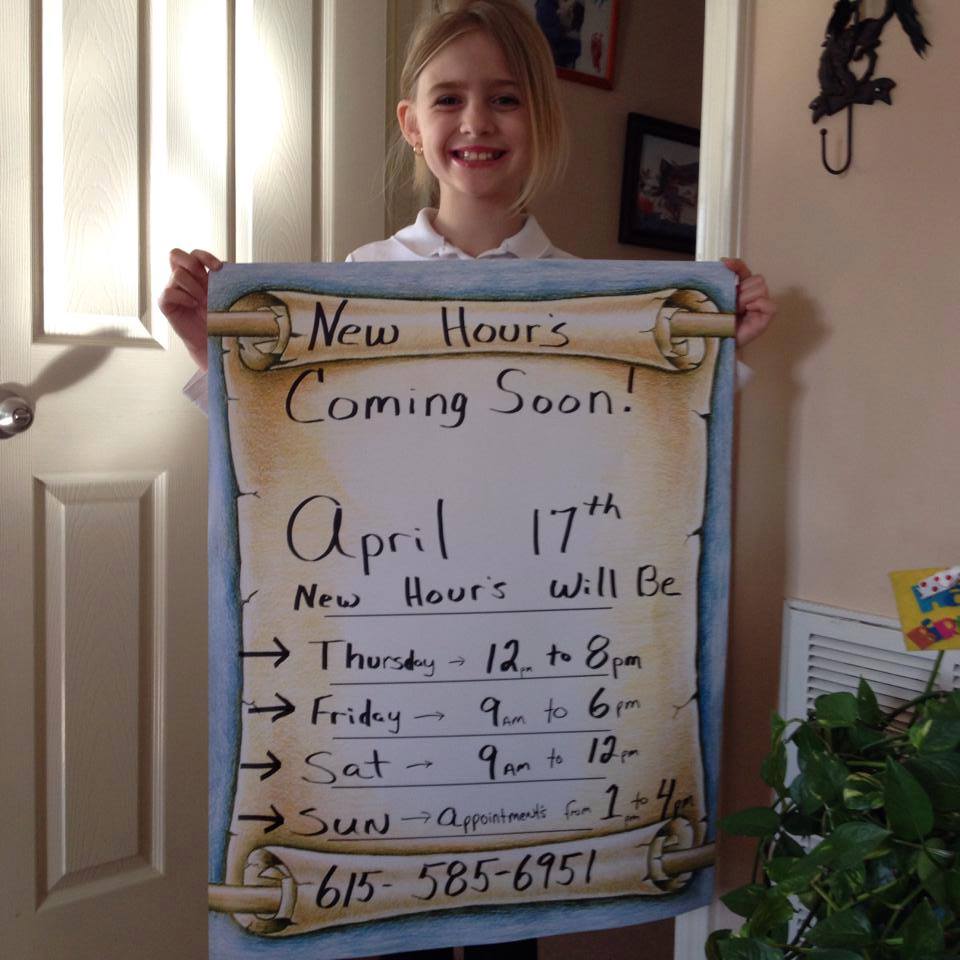 New Hour's
Coming Soon!
April 17th
New Hour's Will Be
→ Thursday → 12pm to 8pm
→ Friday → 9AM to 6pm
→ Sat → 9AM to 12pm
→ SUN → Appointment's from 1pm to 4pm
615-585-6951